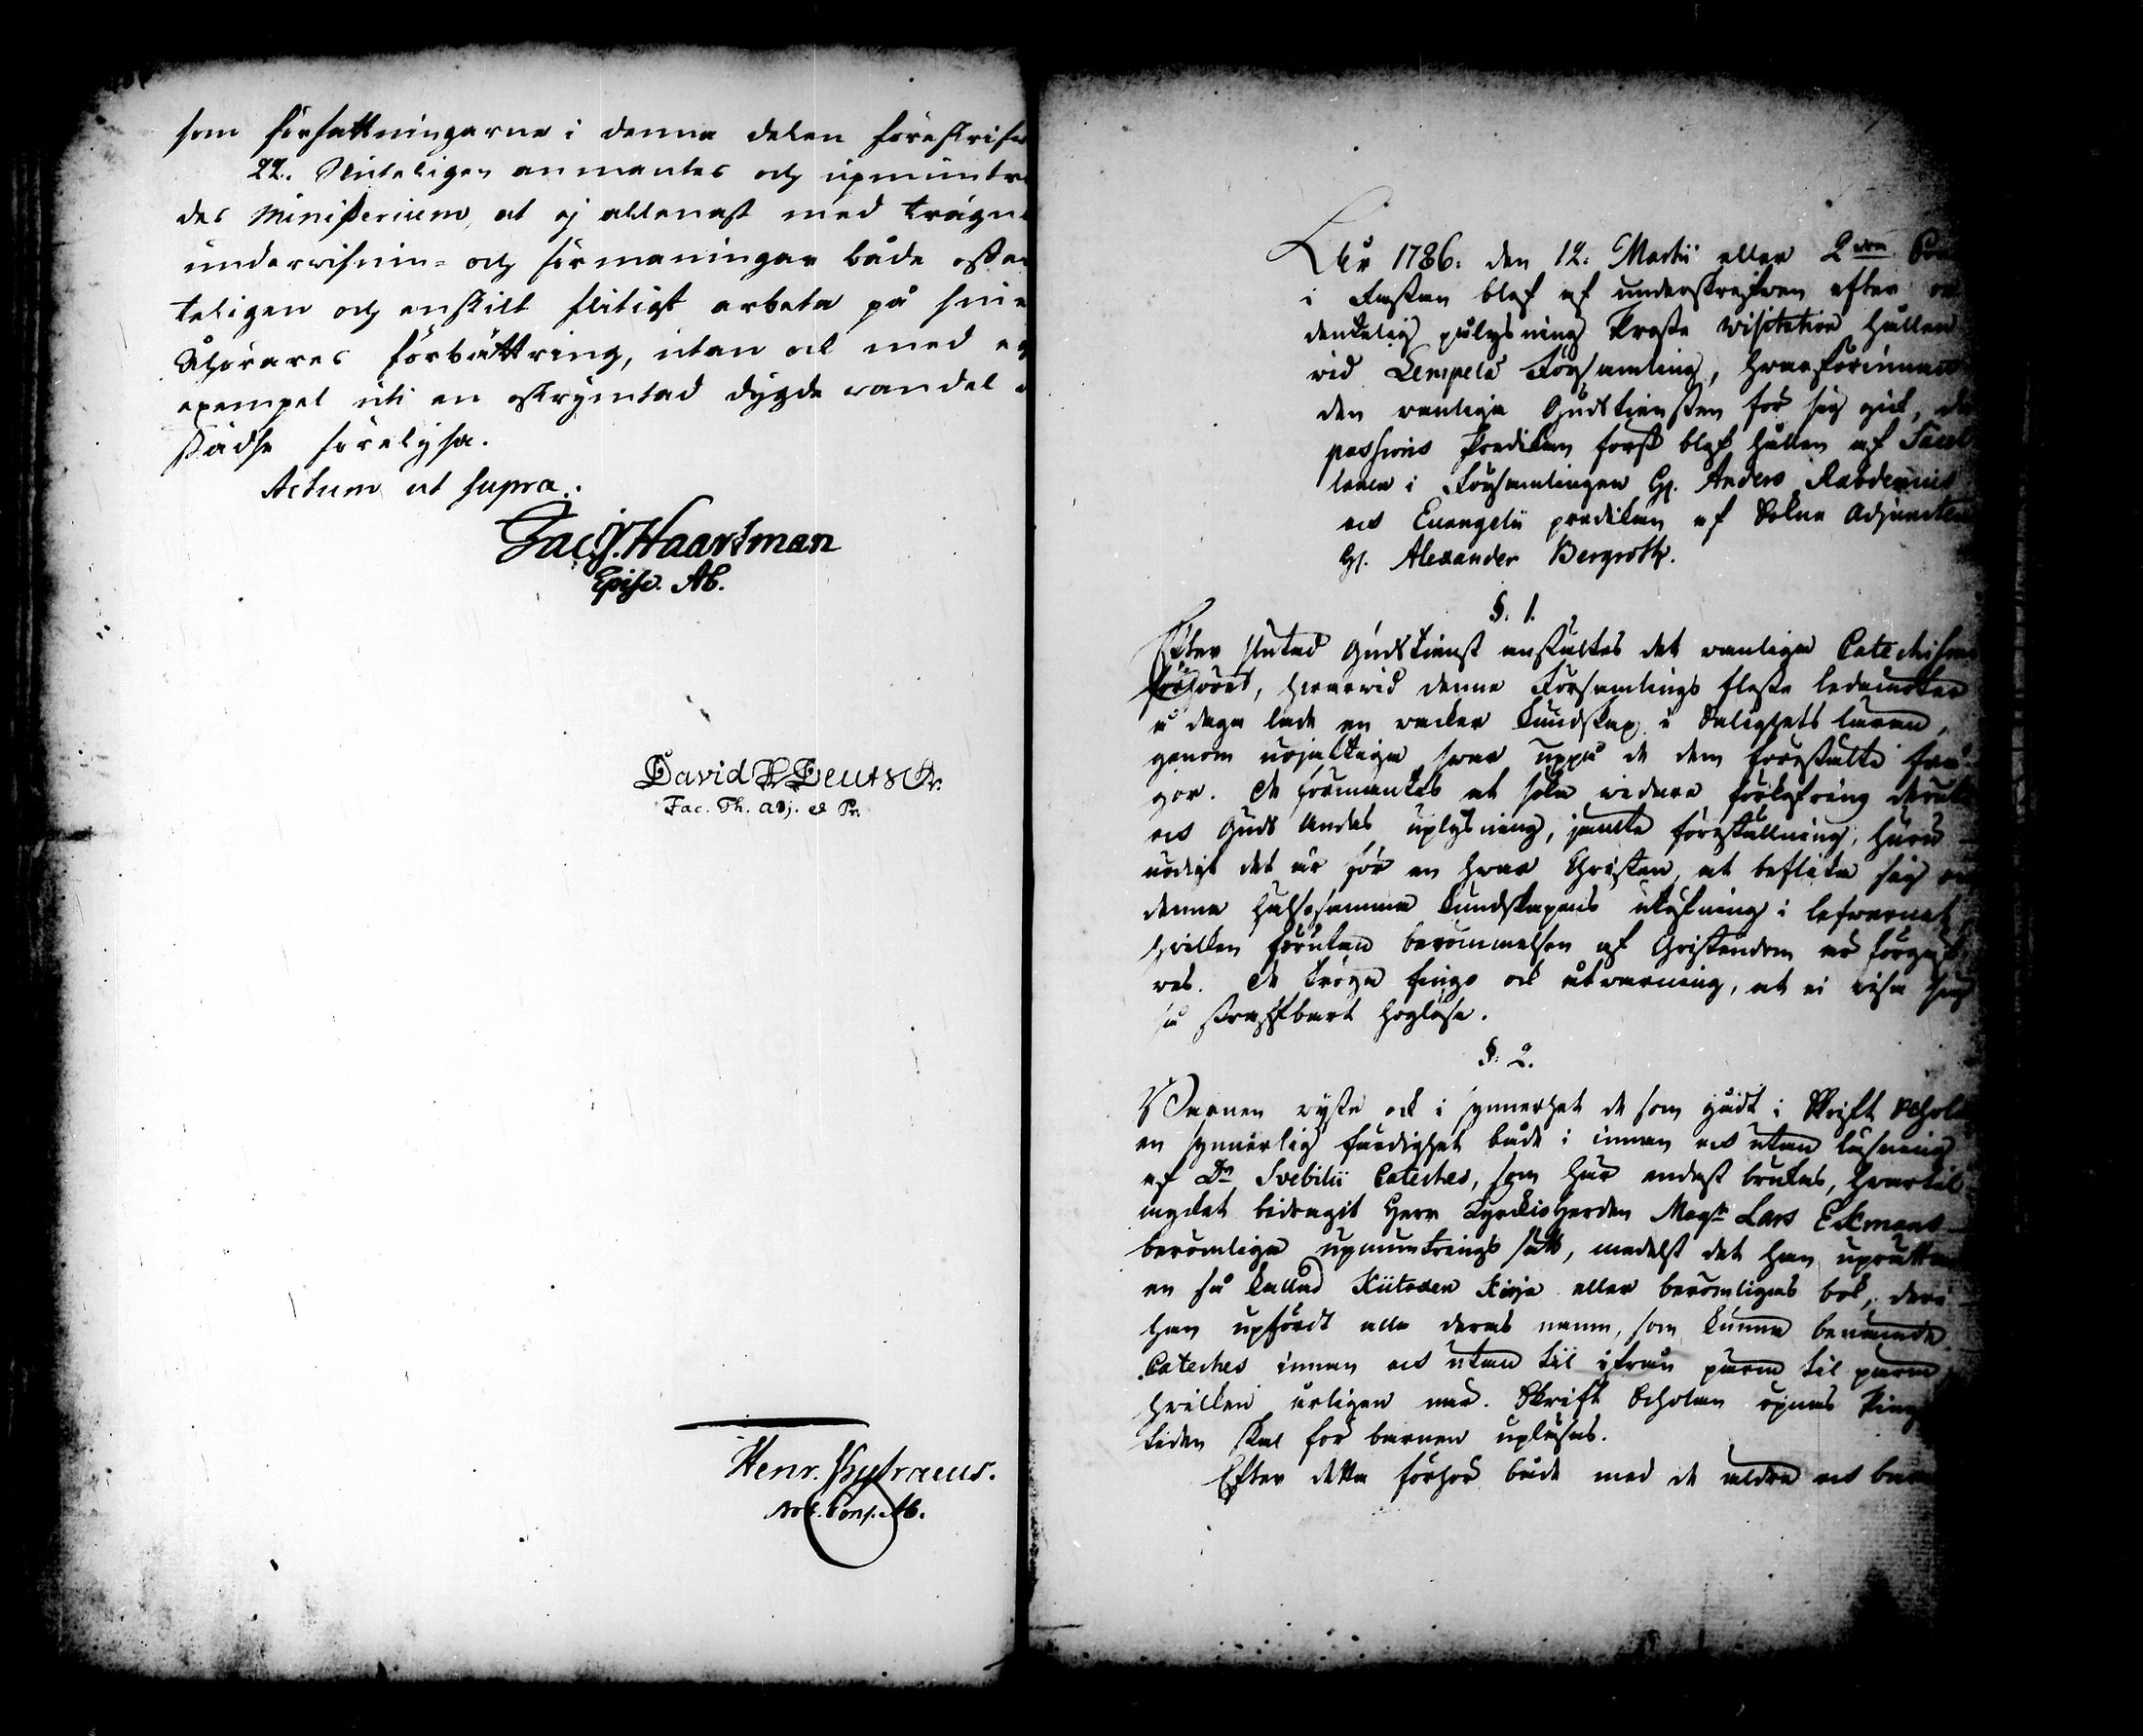 som författningarne i denna delen föreskrifva
22. Sluteligen anmantes och upmuntra-
des Ministerium, at ej allenast med trägne
underwisnin= och förmaningar både offen
teligen och enskilt flitigt arbeta på sine
Åhörares förbättring, utan ock med et
exempel uti en oskrymtad dygde wandel
städse förelysa.
Actum ut supra.
Jac. J. Haartman
Episc. Ab.
David Deutsch.
Fac. Th. adj. & Pr.
Henr. Hydraeus.
Not. Cons. Ab.
Åhr 1786. den 12. Martii eller 2dra
i Fastan blef af underskrefwen efter
denkelig pålysning Proste Visitation hållen
wid Lempelä Församling, hwarförinnan
den wanliga Gudstiensten för sig gick, då
passions Predikan först blef hållen af Sacel
lanen i Församlingen H. Anders Rabdenius
och Evangelii predikan af Sokne Adjuncten
H. Alexander Bergroth.
§. 1.
Efter slutad Gudstienst anstältes det wanliga Catechismi
förhöret, hwarwid denna Församlings flesta ledamöter
å daga lade en wacker kundskap i Salighets läran,
genom nöjaktiga swar uppå de dem förestälte frå-
gor. De förmantes at söka widare förkofring deruti
och Guds Andas uplysning, jämte föreställning, huru
nödigt det är för en hwar Christen, at beflita sig om
denna hälsosamma kundskapens utöfning i lefwernet,
hwilken förutan berömmelsen af Christendom är förgäf-
wes. De tröga fingo ock åtwarning, at ei wisa sig
så straffbart hoglöse.
§. 2.
Barnen wiste ock i synnerhet de som gådt i Skrift Schola
en synnerlig färdighet både i innan och utan läsning
af Dr Svebilii Cateches, som här endast brukas, hwartil
mycket bidragit Herr Kyrckioherden Magr Lars Ekmans
berömliga upmuntrings sätt, medelst det han uprättat
en så kallad Kiitoxen Kirja eller berömligas bok, deri
han upfördt alla deras namn, som kunna benämde
Cateches innan och utan til ifrån perm til perm
hwilken årligen när Skrift Scholan öpnas Pingst
tiden skal för barnen upläsas.
Efter detta förhör både med de äldre och barn